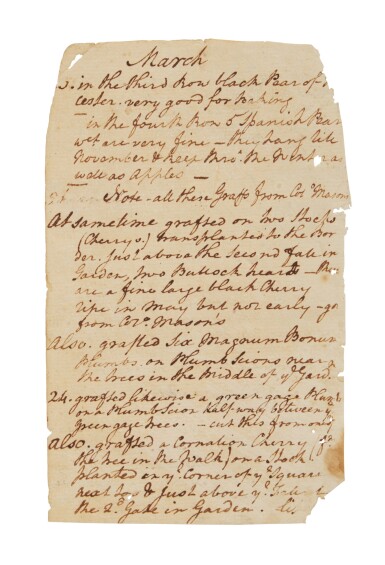 March
in the third Row black Pear of
cester. very good for Baking
in the fourth Row 5 Spanish Pear
wch are very fine - they hang till
November & keep thro' the Winter as
well as Apples -
Note - all these Grafts from Colo Mason
At sametime grafted on two Stocks
(Cherrys.) transplanted to the Bor
der. just above the Second fate in
Garden, two Bullock heart -
are a fine large black Cherry
ripe in May but not early - go
from Colo. Mason's
also. grafted Six Magnum Bonum
Plumbs. on Plumb Scions near
the trees in the Middle of ye Gard.
24. grafted likewise a green gage Plumb
on a Plumb Scion half way between ye
green gage trees. - cut this from
also. grafted a Cornation Cherry
the tree in the Walk) on a Stock
planted in ye Corner of ye Square
next to & just above ye
the 2d. Gate in Garden.